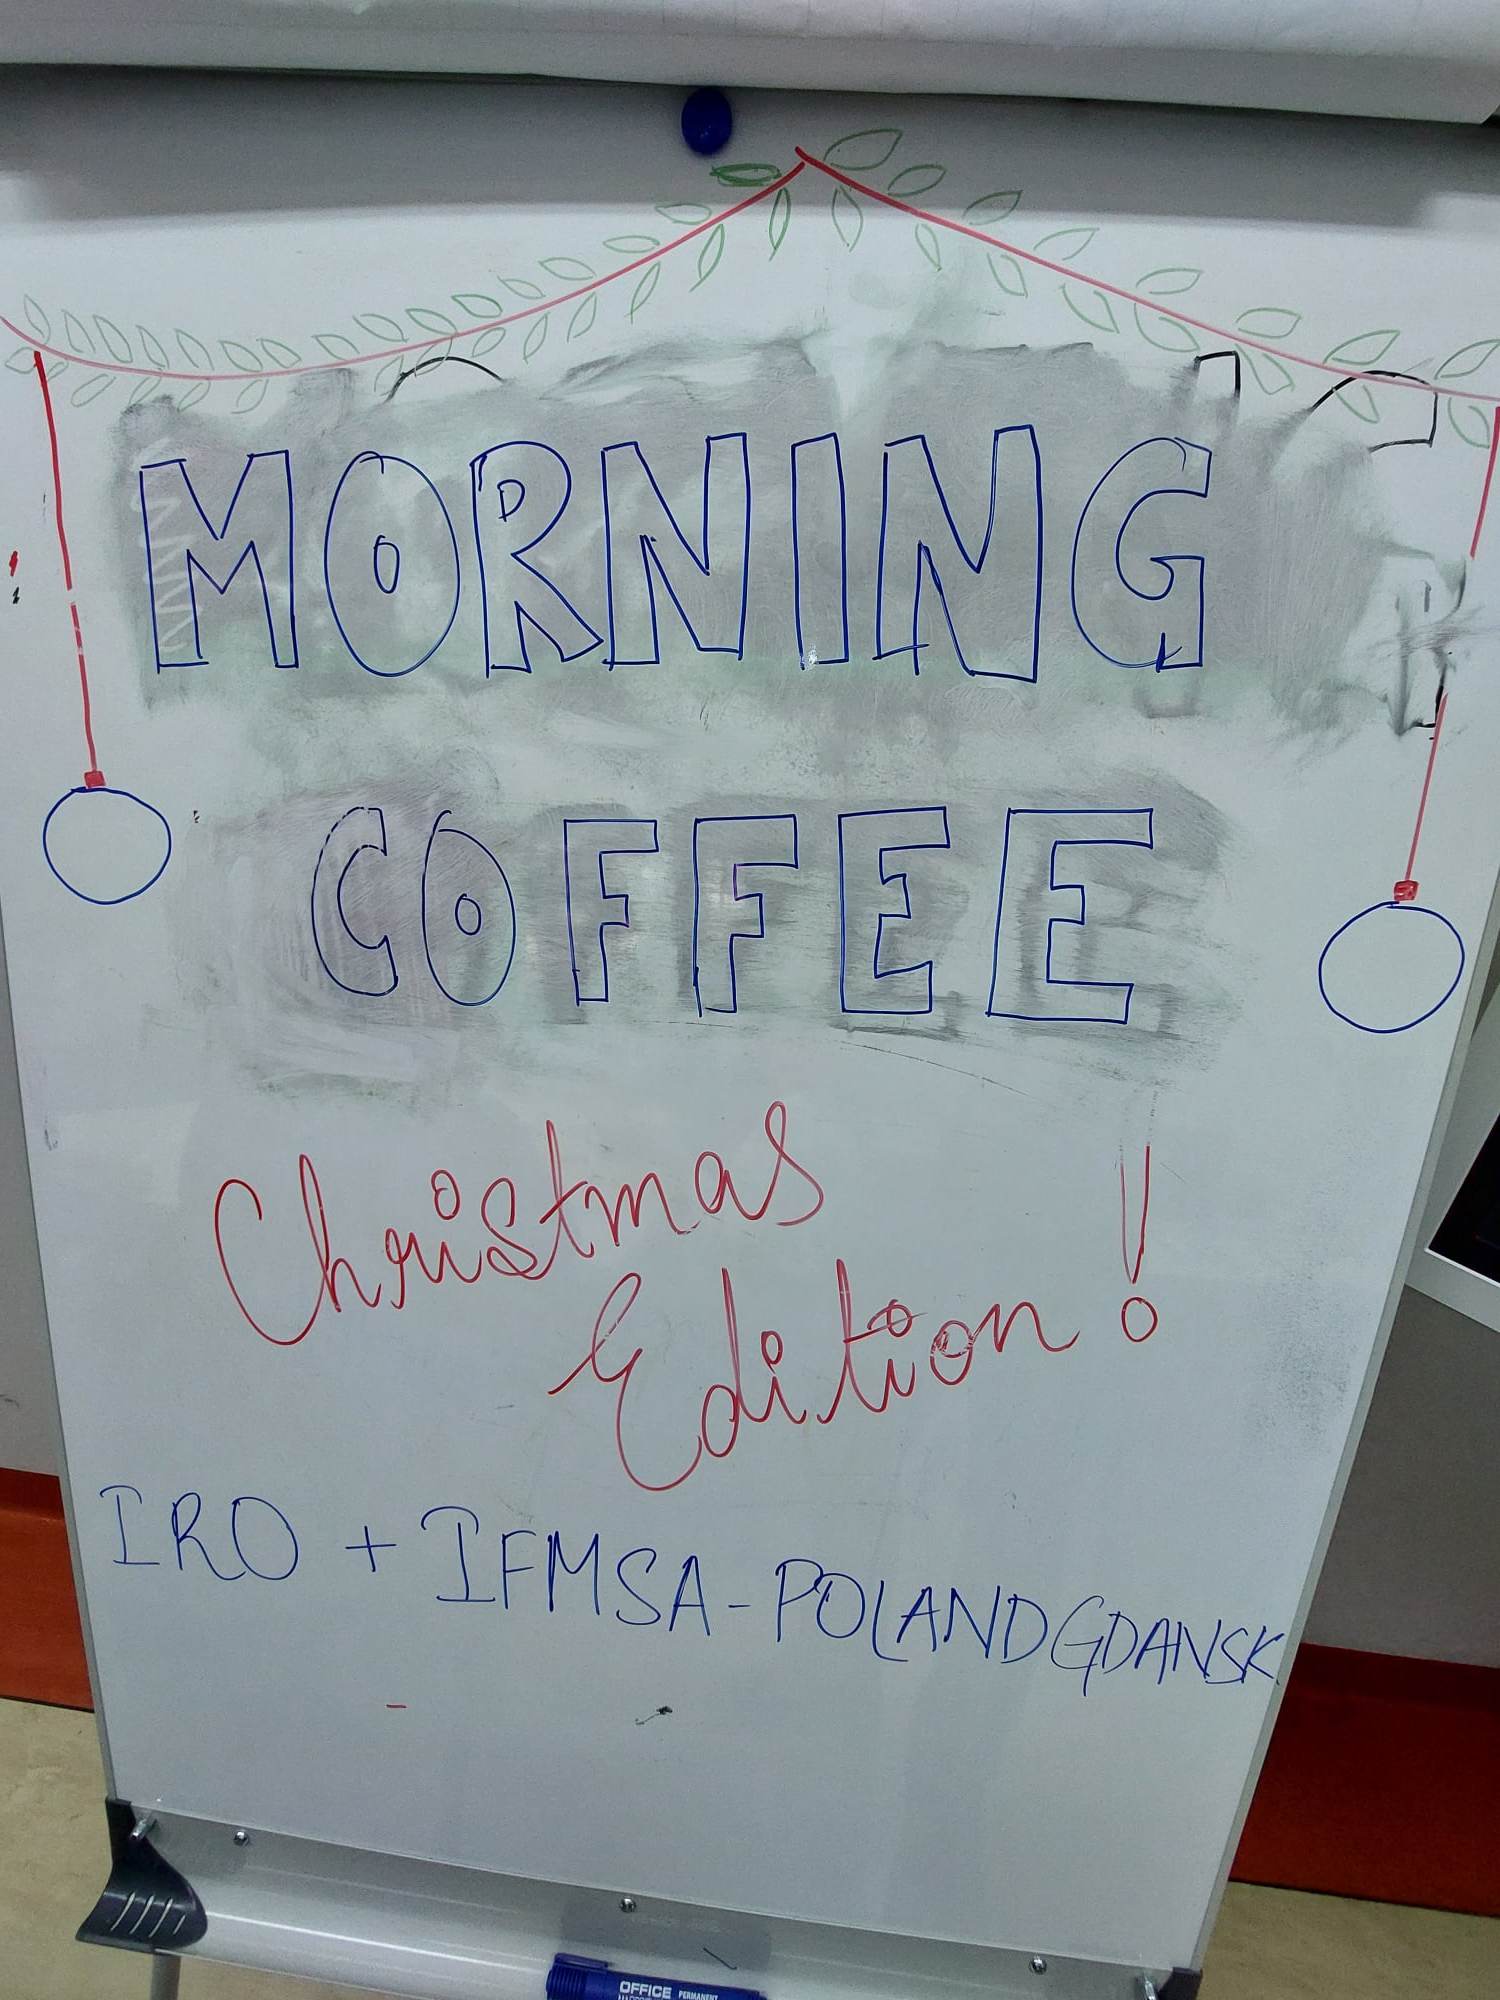 MORNING
COFFEE
Christmas
Edition!
IRO + IFMSA-POLAND GDANSK
OFFICE PERMANENT